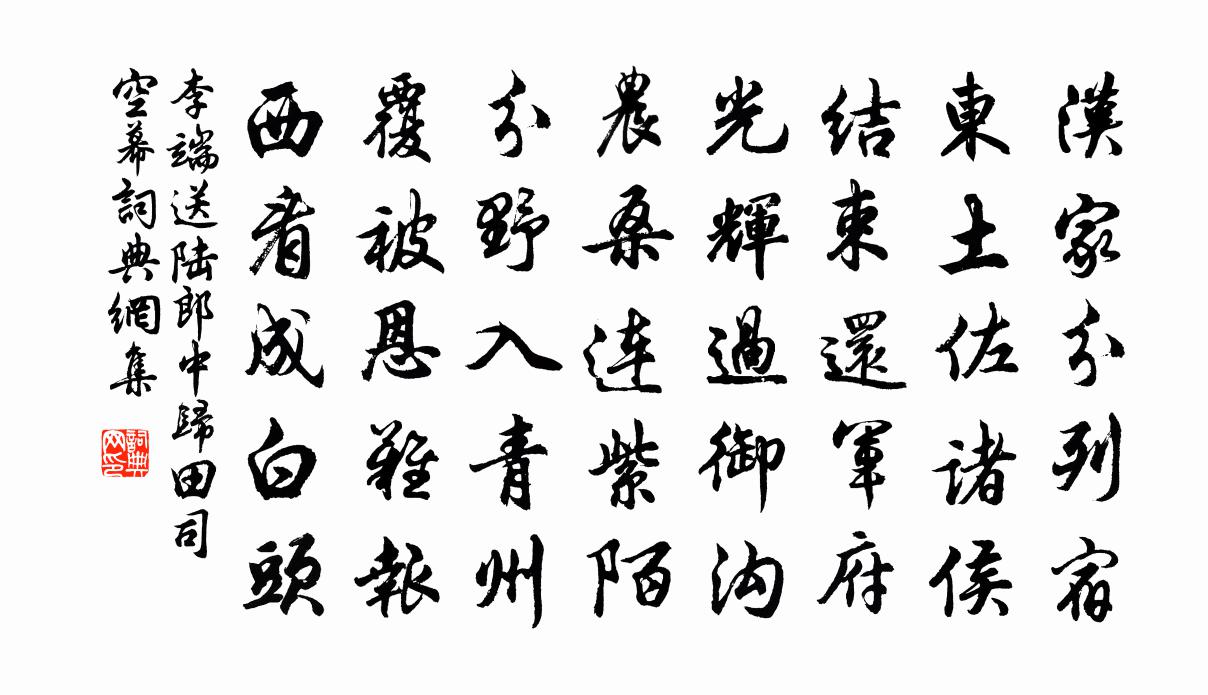 漢家分列宿
東土佐諸侯
結束還軍府
光輝過御溝
農桑連紫陌
分野入青州
覆被恩難報
西看成白頭
李端送陆郎中歸田司
空幕詞典網集
詞典
网印